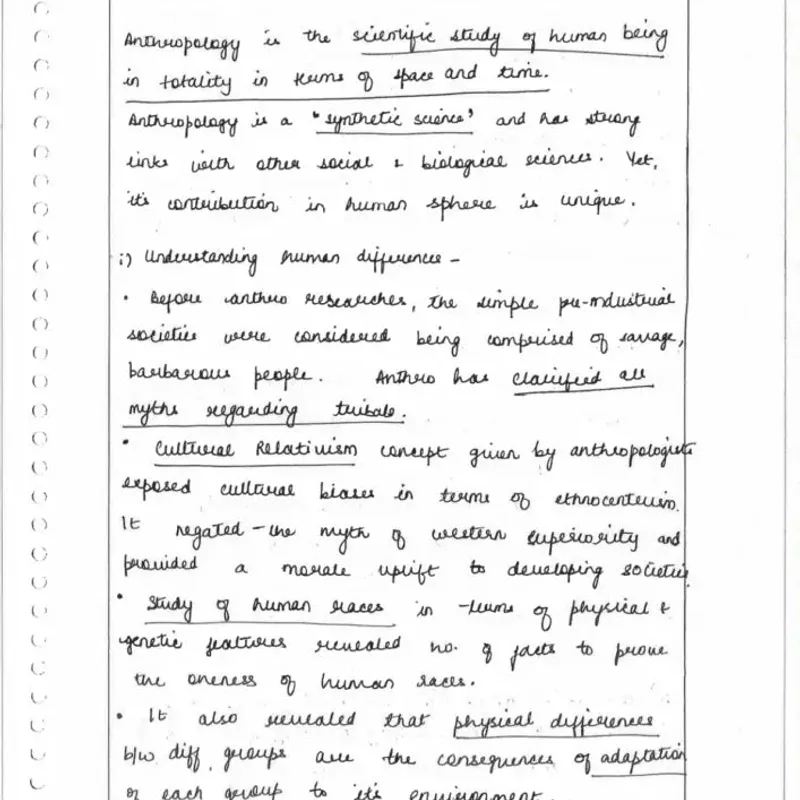 Anthropology is the scientific study of human being
in totality in terms of space and time.
Anthropology is a "synthetic science" and has strong
links with other social & biological sciences. Yet,
it's contribution in human sphere is unique.
i) Understanding human differences -
• Before anthro researches, the simple pre-industrial
societies were considered being comprised of savage,
barbarous people. Anthro has clarified all
myths regarding tribals.
• Cultural Relativism concept given by anthropologists
exposed cultural biases in terms of ethnocentrism.
It negated the myth of western superiority and
provided a morale uplift to developing societies.
• Study of human races in terms of physical &
genetic features revealed no. of facts to prove
the oneness of human races.
• It also revealed that physical differences
b/w diff. groups are the consequences of adaptation
of each group to its environment.